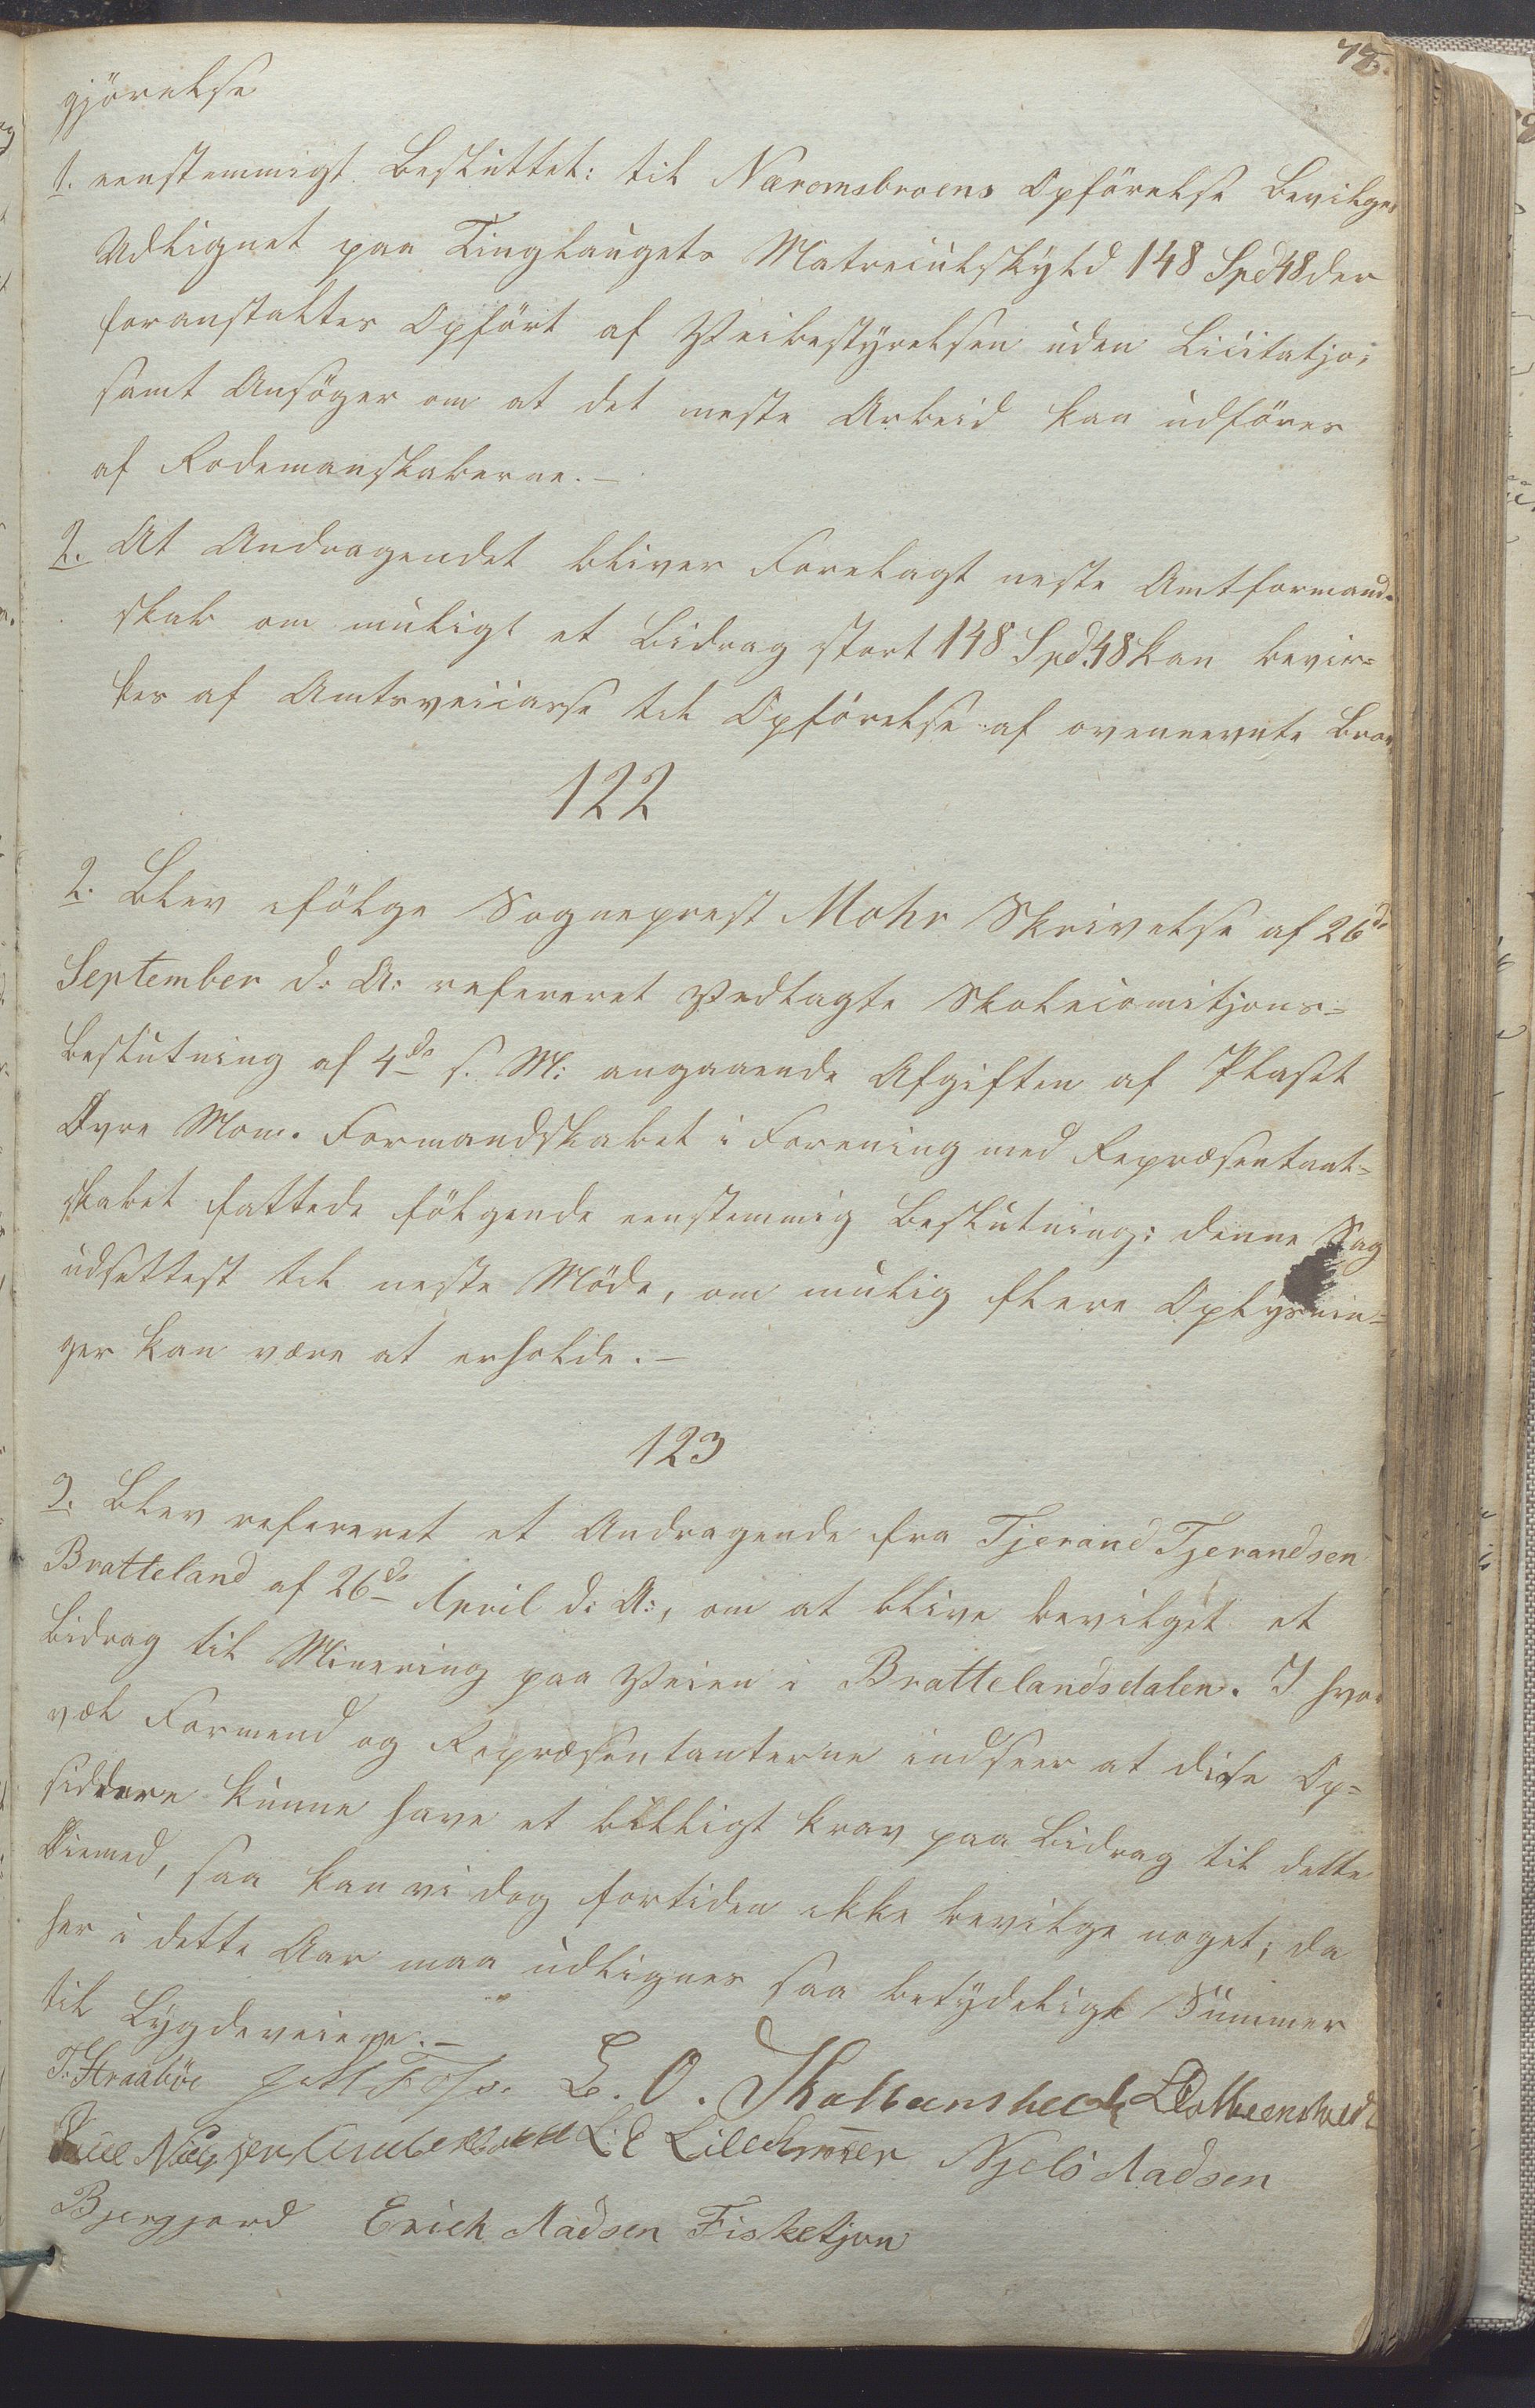 gjörelse
1. eenstemmigt Besluttet: til Næromsbroens Opförelse bevilges
Udlignet paa Tinglaugets Matreiculskyld 148 Spd 48 der
foranstaltes Opfört af Veibestyrelsen uden Licitatjo,
samt Ansöger om at det meste Arbeid kan udföres
af Rodemanskaberne.—
2. At Andragendet bliver Forelagt neste Amtformand-
skab om muligt et Bidrag stort 148 Spd. 48 kan bevir=
kes af Amtsveicasse til Opförelse af ovennevnte Broe
122
2. Blev efölge Sogneprest Mohr Skrivelse af 26de
September d: A: refereret Vedlagte Skolecomitjons=
beslutning af 4de s. M: angaaende Afgiften af Plaset
Övre Mom. Formandskabet i Forening med Repræsentant=
skabet fattede fölgende eenstemmig Beslutning: denne Sag
udsettest til neste Möde, om mulig flere Oplysnin=
ger kan være at erholde.—
123
3. Blev refereret et Andragende fra Tjerand Tjerandsen
Bratteland af 26de April d: A:, om at blive bevilget et
Bidrag til Minering paa Veien i Brattelandsdalen. I hvor
vel Formend og Repræsentanterne indseer at disse Op=
siddere kunne have et billigt krav paa Bidrag til dette
Öiemed, saa kan vi dog fortiden ikke bevilge noget; da
her i dette Aar maa udlignes saa betydeligt Summer
til Bygdeveiene.—
T. Straaböe E. O. Skolbensheed
Njels Madsen
Bjergjord Erich Madsen Fisketjon